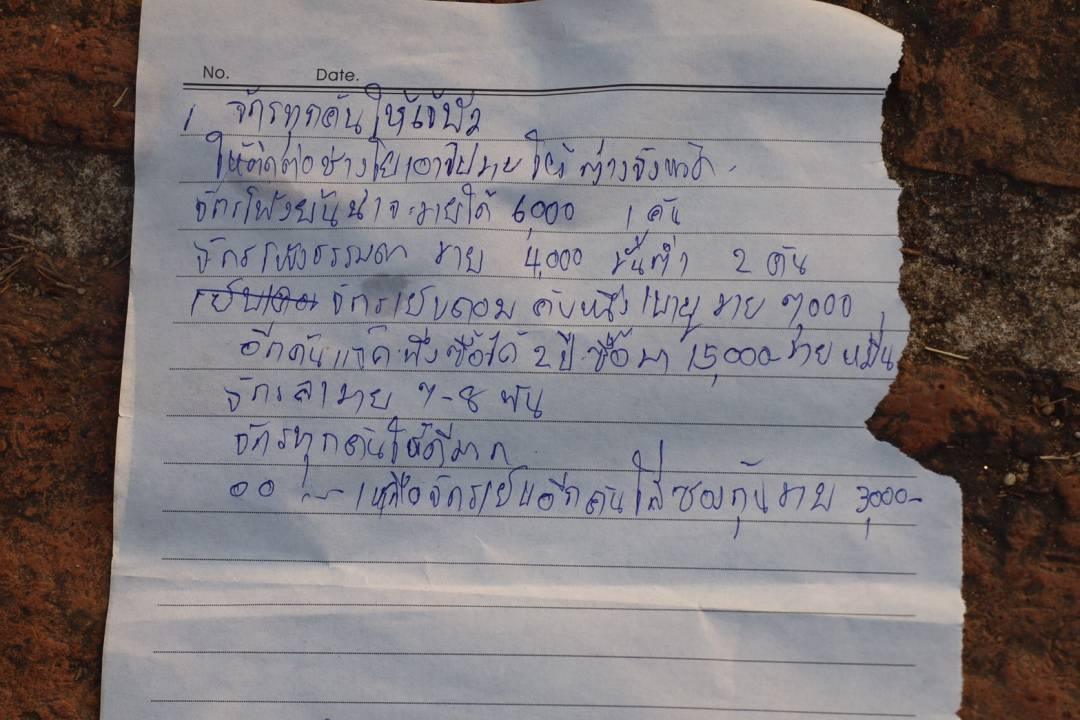 No. Date.
1 จักรทุกคัน ให้เจ้พัว
ให้ติดต่อช่างโย เอาไปขาย ให้ ต่างจังหวัด
จักรโพ้งยันน่าจะขายได้ 6,000 1 คัน
จักรโพ้งธรรมดา ขาย 4,000 ขั้นต่ำ 2 คัน
จักรเย็บคอม คันหนึ่ง ขาย 7,000
อีกคันแจ็คพึ่งซื้อได้ 2 ปี ซื้อมา 15,000 ขาย หมื่น
จักรลา ขาย 7-8 พัน
จักรทุกคันใช้ดีมาก
00 เหลือจักรเย็บอีกคัน ขาย 3,000-